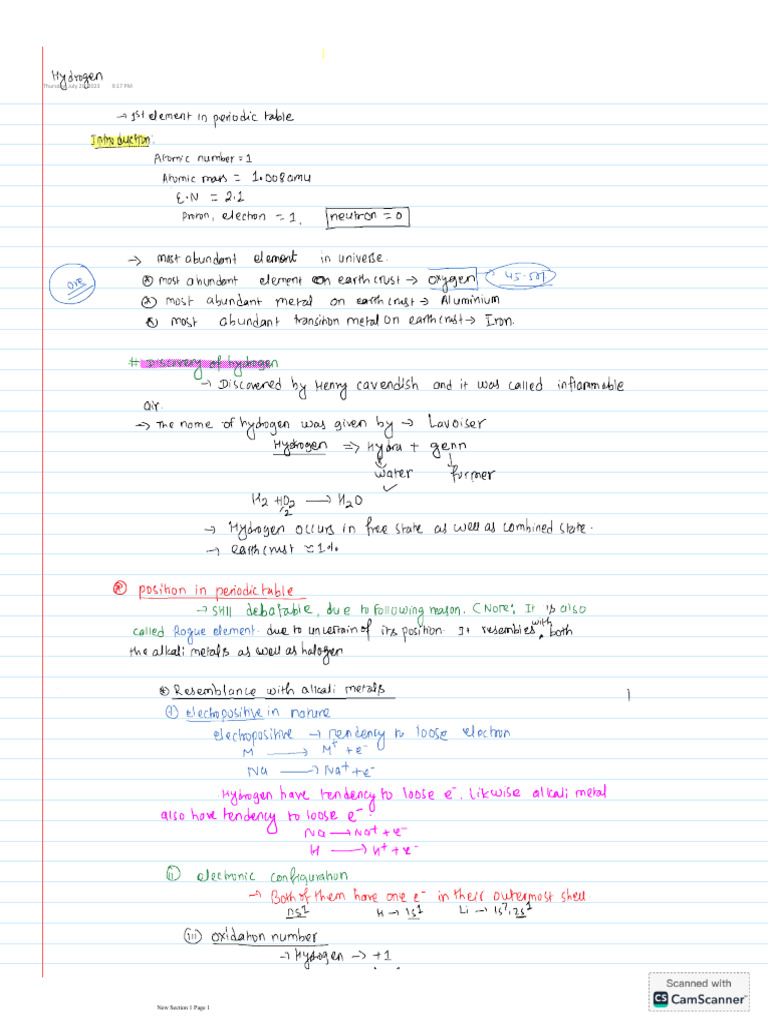 Hydrogen
Thursday, July 20, 2023 9:17 PM
→ 1st element in periodic table
Introduction:
Atomic number = 1
Atomic mass = 1.008amu
E.N = 2.1
Proton, electron = 1, neutron = 0
→ most abundant element in universe.
ore
⊛ most abundant element on earth crust → oxygen 45.50%
⊛ most abundant metal on earth crust → Aluminium
⊛ most abundant transition metal on earth crust → Iron.
# Discovery of hydrogen
→ Discovered by Henry cavendish and it was called inflammable
air.
→ The name of hydrogen was given by → Lavoiser
Hydrogen => Hydra + genn
water former
H2 + O2/2 → H2O
→ Hydrogen occurs in free state as well as combined state.
→ earth crust ≈ 1%
⊛ position in periodic table
→ Still debatable, due to following reason. (Note: It is also
called Rogue element. due to uncertain of its position. It resembles with both
the alkali metals as well as halogen
⊛ Resemblance with alkali metals
(i) electropositive in nature
electropositive → tendency to loose electron
M → M+ + e-
Na → Na+ + e-
Hydrogen have tendency to loose e-. Likwise alkali metal
also have tendency to loose e-.
Na → Na+ + e-
H → H+ + e-
(ii) electronic configuration
→ Both of them have one e- in their outermost shell.
ns1 H → 1s1 Li → 1s2, 2s1
(iii) oxidation number
→ Hydrogen → +1
Scanned with
CS CamScanner
New Section 1 Page 1